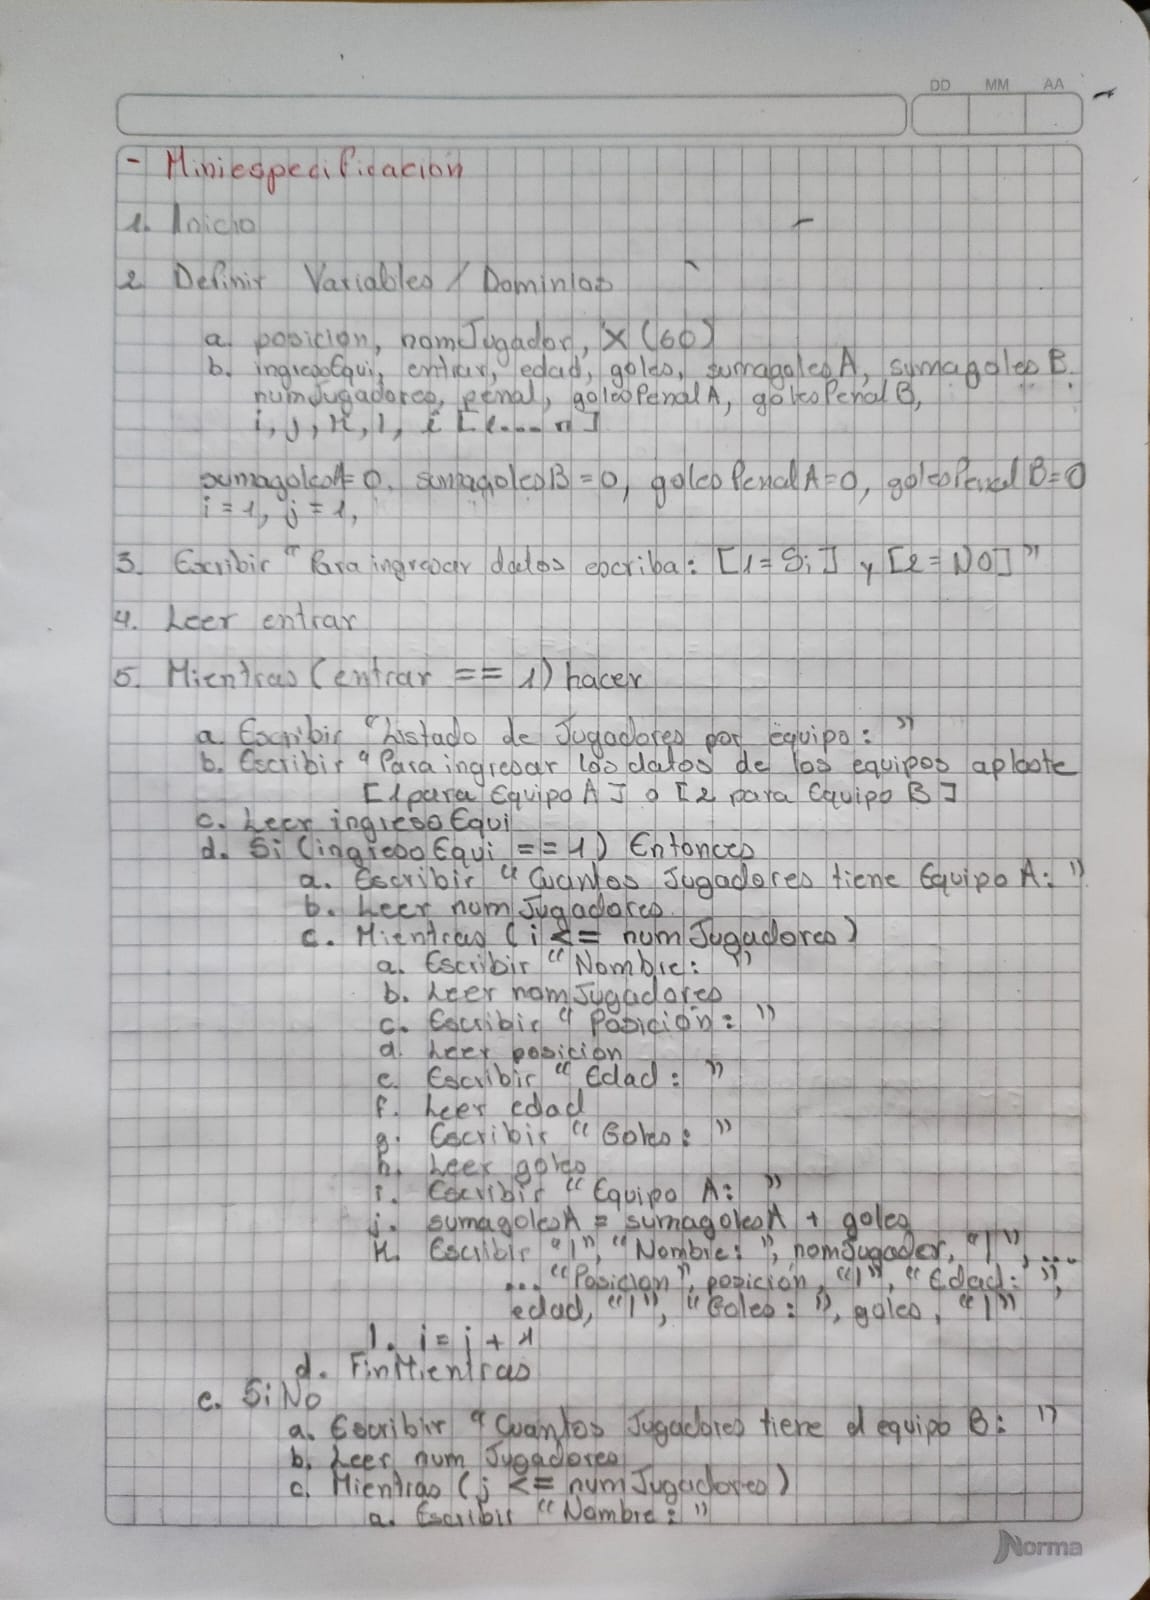 DD MM AA
- Miniespecificacion
1. Inicio
2 Definir Variables / Dominios
a. posicion, nomJugador, X (60)
b. ingresoEqui, entrar, edad, goles, sumagolesA, sumagoles B.
numJugadores, penal, golesPenalA, golesPenal B,
i, j, K, l, i [1....n]
sumagolesA=0, sumagolesB=0, golesPenalA=0, golesPenal B=0
i = 1, j = 1,
3. Escribir "Para ingresar datos escriba: [1=Si] y [2=NO]"
4. Leer entrar
5. Mientras (entrar == 1) hacer
a. Escribir "Listado de Jugadores por equipo: "
b. Escribir "Para ingresar los datos de los equipos aplaste
[1para Equipo A] o [2 para Equipo B]
c. Leer ingresoEqui
d. Si (ingresoEqui == 1) Entonces
a. Escribir "Cuantos Jugadores tiene Equipo A: "
b. Leer numJugadores
c. Mientras (i <= numJugadores)
a. Escribir "Nombre: "
b. Leer nomJugadores
c. Escribir "Posicion: "
d. Leer posicion
e. Escribir "Edad: "
f. Leer edad
g. Escribir "Goles: "
h. Leer goles
i. Escribir "Equipo A: "
j. sumagolesA = sumagolesA + goles
K. Escribir "|", "Nombre: ", nomJugador, "|", ...
... "Posicion", posicion, "|", "Edad: ",
edad, "|", "Goles: ", goles, "|"
l. i = i + 1
d. FinMientras
e. SiNo
a. Escribir "Cuantos Jugadores tiene el equipo B: "
b. Leer num Jugadores
c. Mientras (j <= numJugadores)
a. Escribir "Nombre: "
Norma